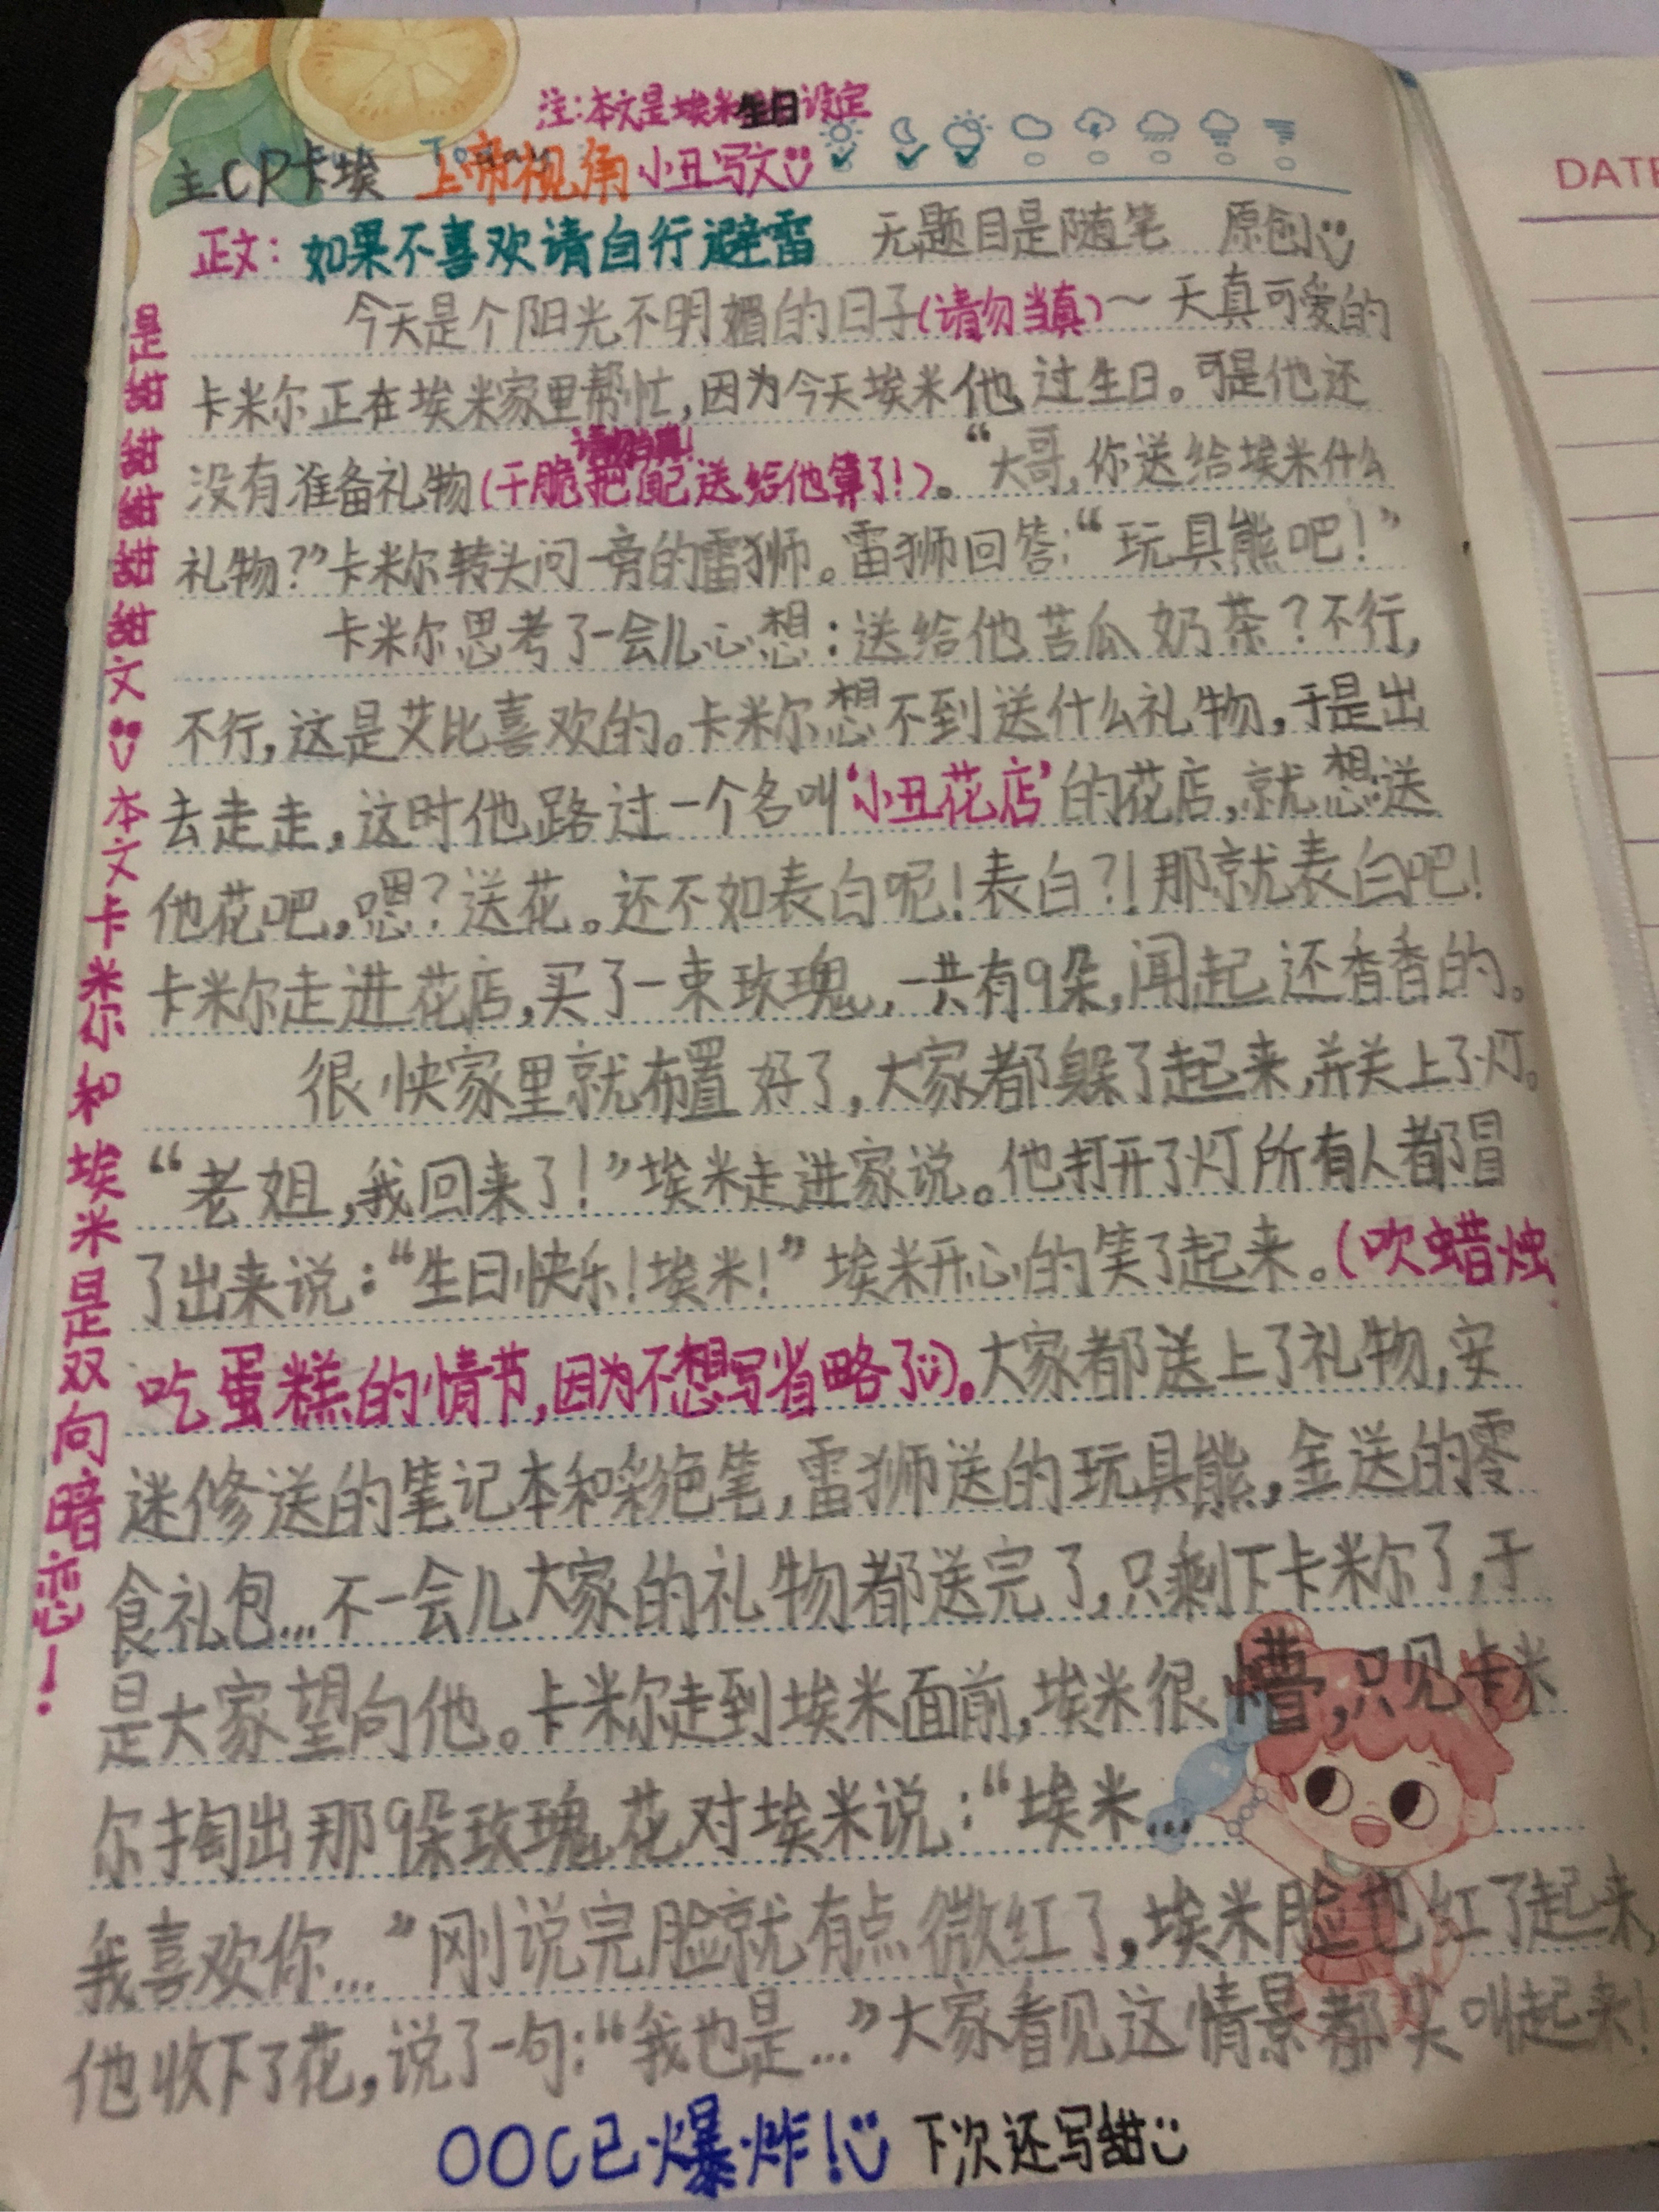 注:本文是埃米生日设定
主CP卡埃 Today 上帝视角 小丑写文
正文: 如果不喜欢请自行避雷 无题目是随笔 原创
今天是个阳光不明媚的日子(请勿当真)～天真可爱的
卡米尔正在埃米家里帮忙,因为今天埃米他过生日。可是他还
请勿当真!
没有准备礼物(干脆把自己送给他算了!)。“大哥,你送给埃米什么
礼物?”卡米尔转头问一旁的雷狮。雷狮回答:“玩具熊吧!”
卡米尔思考了一会儿心想:送给他苦瓜奶茶?不行,
不行,这是艾比喜欢的。卡米尔想不到送什么礼物,于是出
去走走,这时他路过一个名叫‘小丑花店’的花店,就想送
他花吧,嗯?送花。还不如表白呢!表白?!那就表白吧!
卡米尔走进花店,买了一束玫瑰,一共有9朵,闻起还香香的。
很快家里就布置好了,大家都躲了起来,并关上了灯。
“老姐,我回来了!”埃米走进家说。他打开了灯所有人都冒
了出来说:“生日快乐!埃米!”埃米开心的笑了起来。(吹蜡烛
吃蛋糕的情节,因为不想写省略了)。大家都送上了礼物,安
迷修送的笔记本和彩色笔,雷狮送的玩具熊,金送的零
食礼包...不一会儿大家的礼物都送完了,只剩下卡米尔了,于
是大家望向他。卡米尔走到埃米面前,埃米很懵,只见卡米
尔掏出那9朵玫瑰花对埃米说:“埃米...
我喜欢你...”刚说完脸就有点微红了,埃米脸也红了起来,
他收下了花,说了一句:“我也是...”大家看见这情景都尖叫起来!
OOC已爆炸! 下次还写甜
是甜甜甜甜甜文 本文卡米尔和埃米是双向暗恋!
DATE